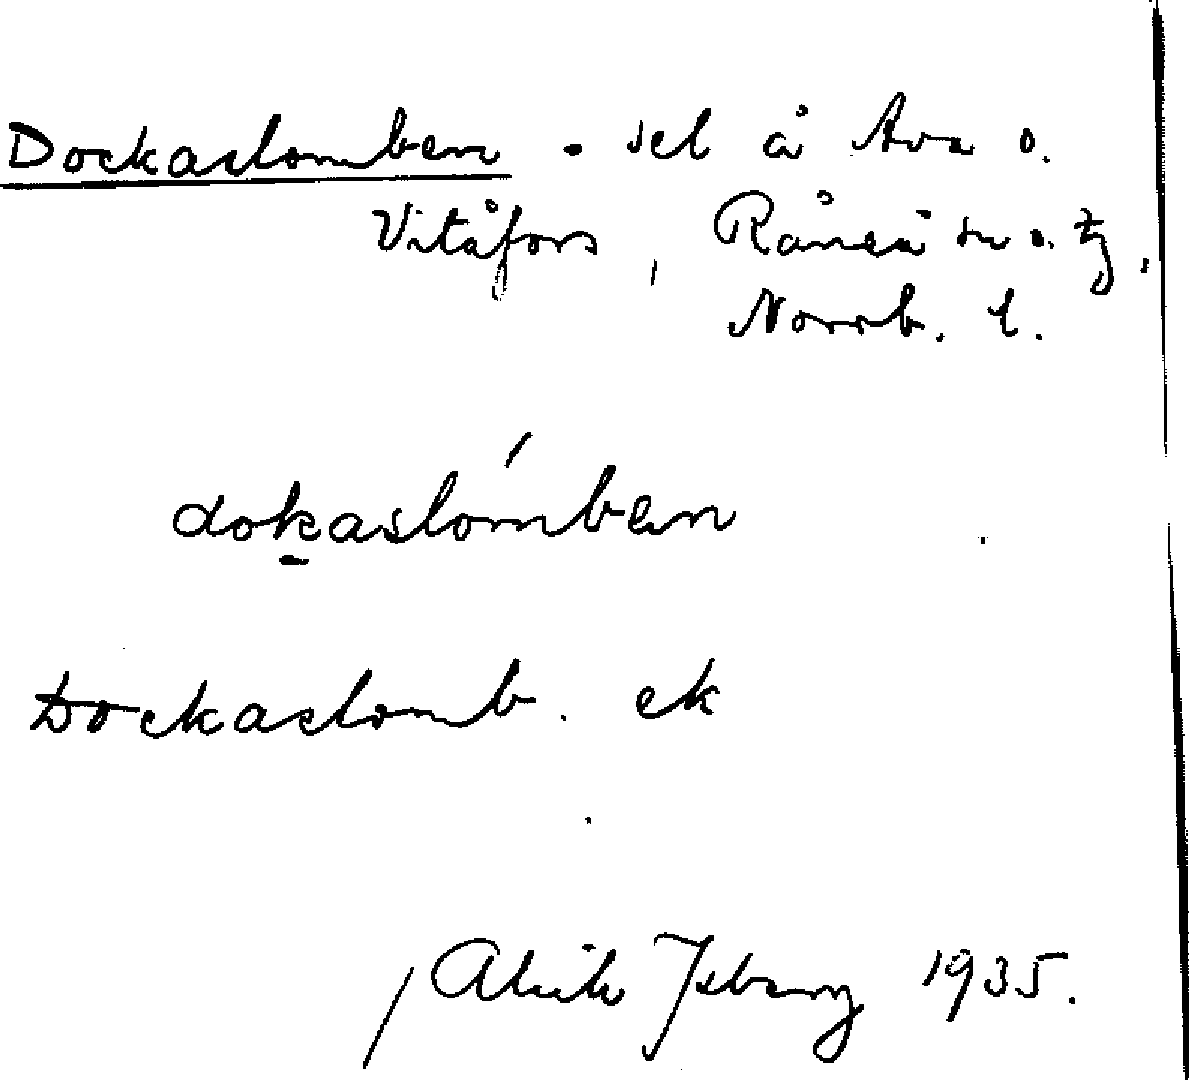 Dockaslomben - sel å Ava o.
Vitåfors, Råneå sn o. tg,
Norrb. l.
dokaslómben
Dockaslomb. ek
Alvik Isberg 1935.